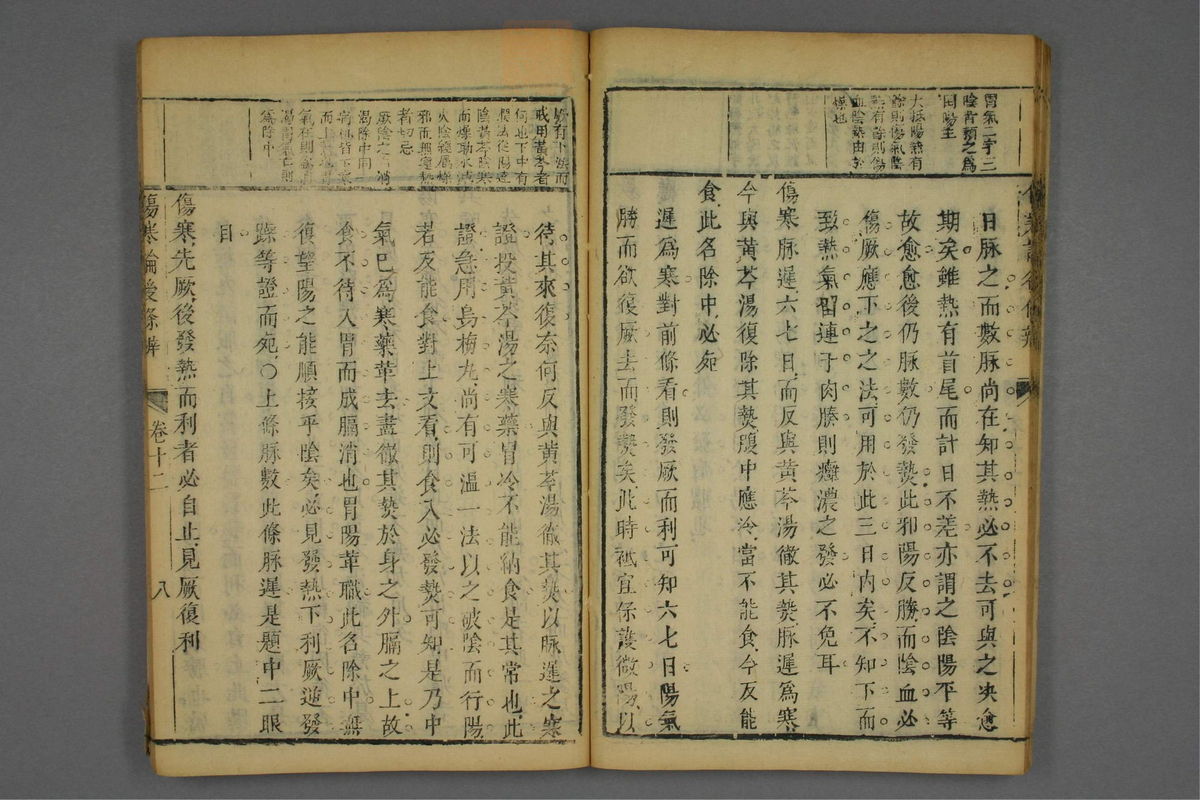 胃氣二字三
陰皆賴之爲
回陽主
大抵陽熱有
餘則傷氣陰
熱有餘則傷
血陰熱由於
燥也
日脉之而數脉尚在知其熱必不去可與之决愈
期矣雖熱有首尾而計日不差亦謂之陰陽平等
故愈愈後仍脉數仍發𤍠此邪陽反勝而陰血必
傷厥應下之之法可用於此三日内矣不知下而
致熱氣留連于肉腠則癰濃之發必不免耳
傷寒脉遲六七日而反與黄芩湯徹其𤍠脉遲爲寒
今與黄芩湯復除其𤍠腹中應冷當不能食今反能
食此名除中必死
遲爲寒對前條看則發厥而利可知六七日陽氣
勝而欲復厥去而發𤍠矣此時秪宜保護微陽以
厥有下法而
戒用黄芩者
何也下中有
陰黄芩陰寒
邪而興寒熱
者切忌
厥陰之
渴除中同一
而上
氣在則爲消
渴胃氣亡則
爲除中
待其來復奈何反與黄芩湯徹其𤍠以脉遲之寒
證投黄芩湯之寒藥胃冷不能納食是其常也此
證急用烏梅丸尚有可温一法以之破陰而行陽
若反能食對上文看則食入必發𤍠可知是乃中
氣已爲寒藥革去盡徹其𤍠於身之外膈之上故
食不待入胃而成膈消也胃陽革職此名除中無
復望陽之能順接乎陰矣必見發熱下利厥逆發
躁等證而死○上條脉數此條脉遲是題中二眼
目
傷寒先厥後發熱而利者必自止見厥復利
傷寒論後條辨
卷十二
八